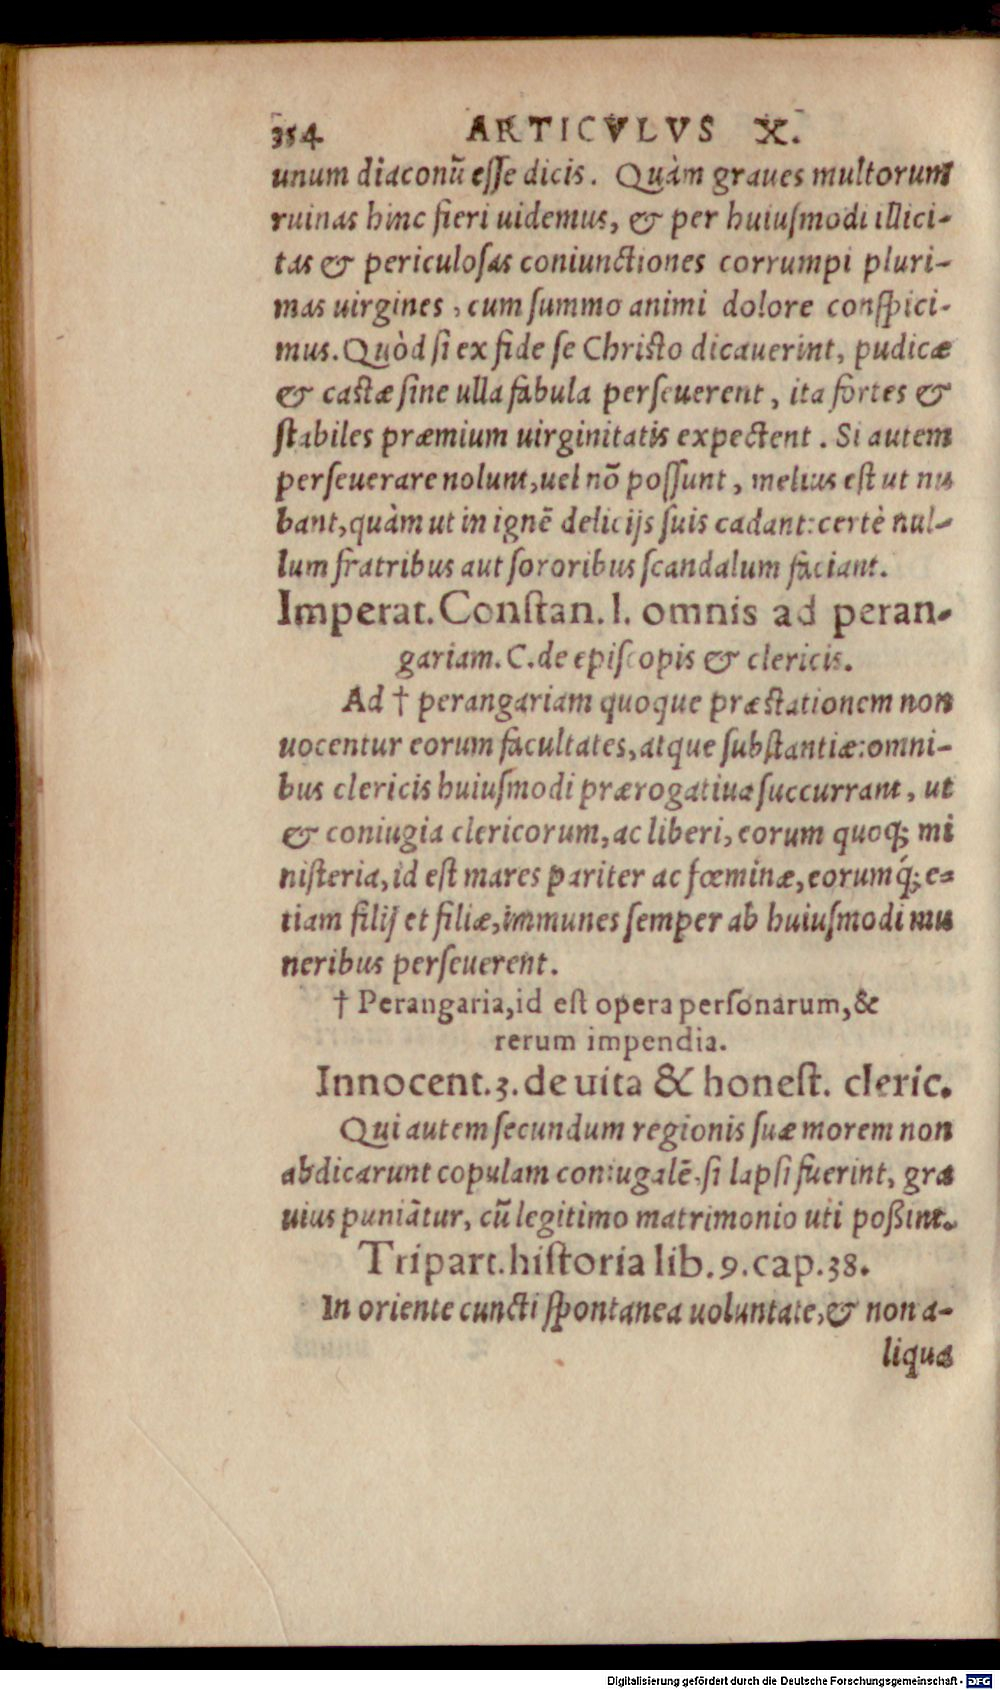 354 ARTICVLVS X.
unum diaconū esse dicis. Quàm graues multorum
ruinas hinc fieri uidemus, & per huiusmodi illici-
tas & periculosas coniunctiones corrumpi pluri-
mas uirgines, cum summo animi dolore conspici-
mus. Quòd si ex fide se Christo dicauerint, pudicæ
& castæ sine ulla fabula perseuerent, ita fortes &
stabiles præmium uirginitatis expectent. Si autem
perseuerare nolunt, uel nō possunt, melius est ut nu
bant, quàm ut in ignē delicijs suis cadant: certè nul-
lum fratribus aut sororibus scandalum faciant.
Imperat. Constan. l. omnis ad peran-
gariam. C. de episcopis & clericis.
Ad † perangariam quoque præstationem non
uocentur eorum facultates, atque substantiæ: omni-
bus clericis huiusmodi prærogatiua succurrant, ut
& coniugia clericorum, ac liberi, eorum quoq; mi
nisteria, id est mares pariter ac fœminæ, eorumq́; e-
tiam filij et filiæ, immunes semper ab huiusmodi mu
neribus perseuerent.
† Perangaria, id est opera personarum, &
rerum impendia.
Innocent. 3. de uita & honest. cleric.
Qui autem secundum regionis suæ morem non
abdicarunt copulam coniugalē, si lapsi fuerint, gra
uius puniātur, cū legitimo matrimonio uti poßint.
Tripart. historia lib. 9. cap. 38.
In oriente cuncti spontanea uoluntate, & non a-
liqua
Digitalisierung gefördert durch die Deutsche Forschungsgemeinschaft - DFG